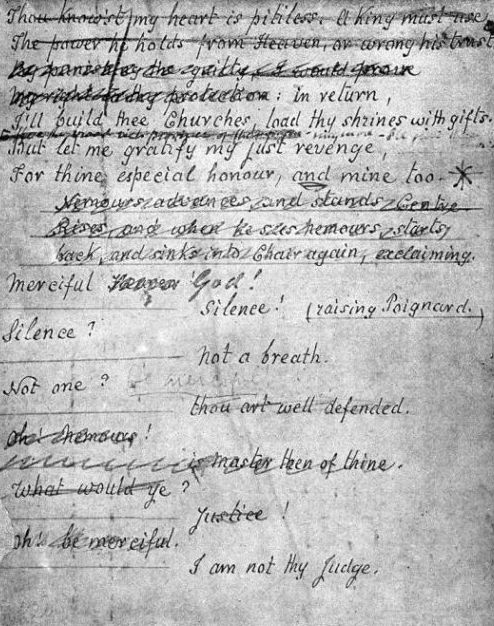 Thou know'st my heart is pitiless: A King must use
The power he holds from Heaven, or wrong his trust
By punishing the guilty, I would prove
my right to thy protection: in return,
I'll build thee Churches, load thy shrines with gifts.
But let me gratify my just revenge,
For thine especial honour, and mine too.
Nemours advances and stands Centre
Rises, and when he sees nemours, starts,
back, and sinks into Chair again, exclaiming.
Merciful Heaven God!
Silence! (raising Poignard.)
Silence?
not a breath.
Not one?
thou art well defended.
Oh! Nemours!
is master then of thine.
What would ye?
Justice!
Oh! be merciful.
I am not thy Judge.